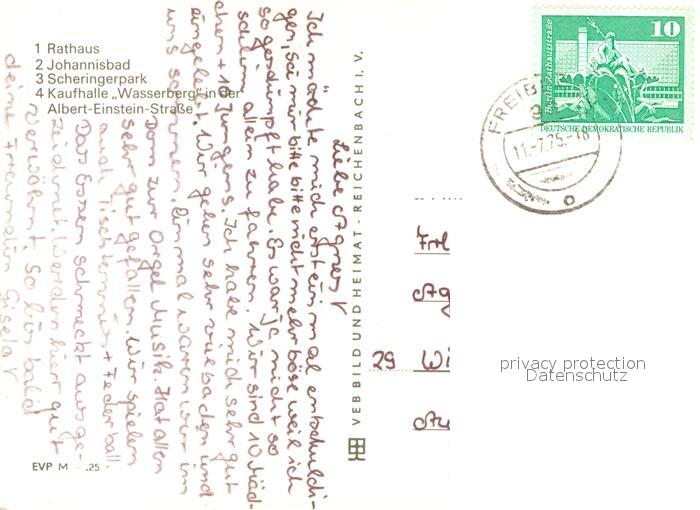 1 Rathaus
2 Johannisbad
3 Scheringerpark
4 Kaufhalle „Wasserberg" in der
Albert-Einstein-Straße
Liebe Agnes!
Ich möchte mich erst einmal entschuldi-
gen, sei mir bitte bitte nicht mehr böse weil ich
so geschimpft habe. Es war ja nicht so
schlimm allein zu fahren. Wir sind 10 Mäd-
chen + 1 Jungens. Ich habe mich sehr gut
eingelebt. Wir gehen sehr viel baden und
uns sonnen. Einmal waren wir im
Dom zur Orgel Musik. Hat allen
sehr gut gefallen. Wir spielen
auch Tischtennis + Federball
Das Essen schmeckt ausge-
zeichnet. Werden hier gut
verwöhnt, so bis bald
deine Freundin Gisela!
EVP M -.25
VEB BILD UND HEIMAT - REICHENBACH I. V.
Berlin, Rathausstraße
10
DEUTSCHE DEMOKRATISCHE REPUBLIK
FREIB
9
11.-7.75.-18
Frl
Ag
29 Wi
Au
privacy protection
Datenschutz